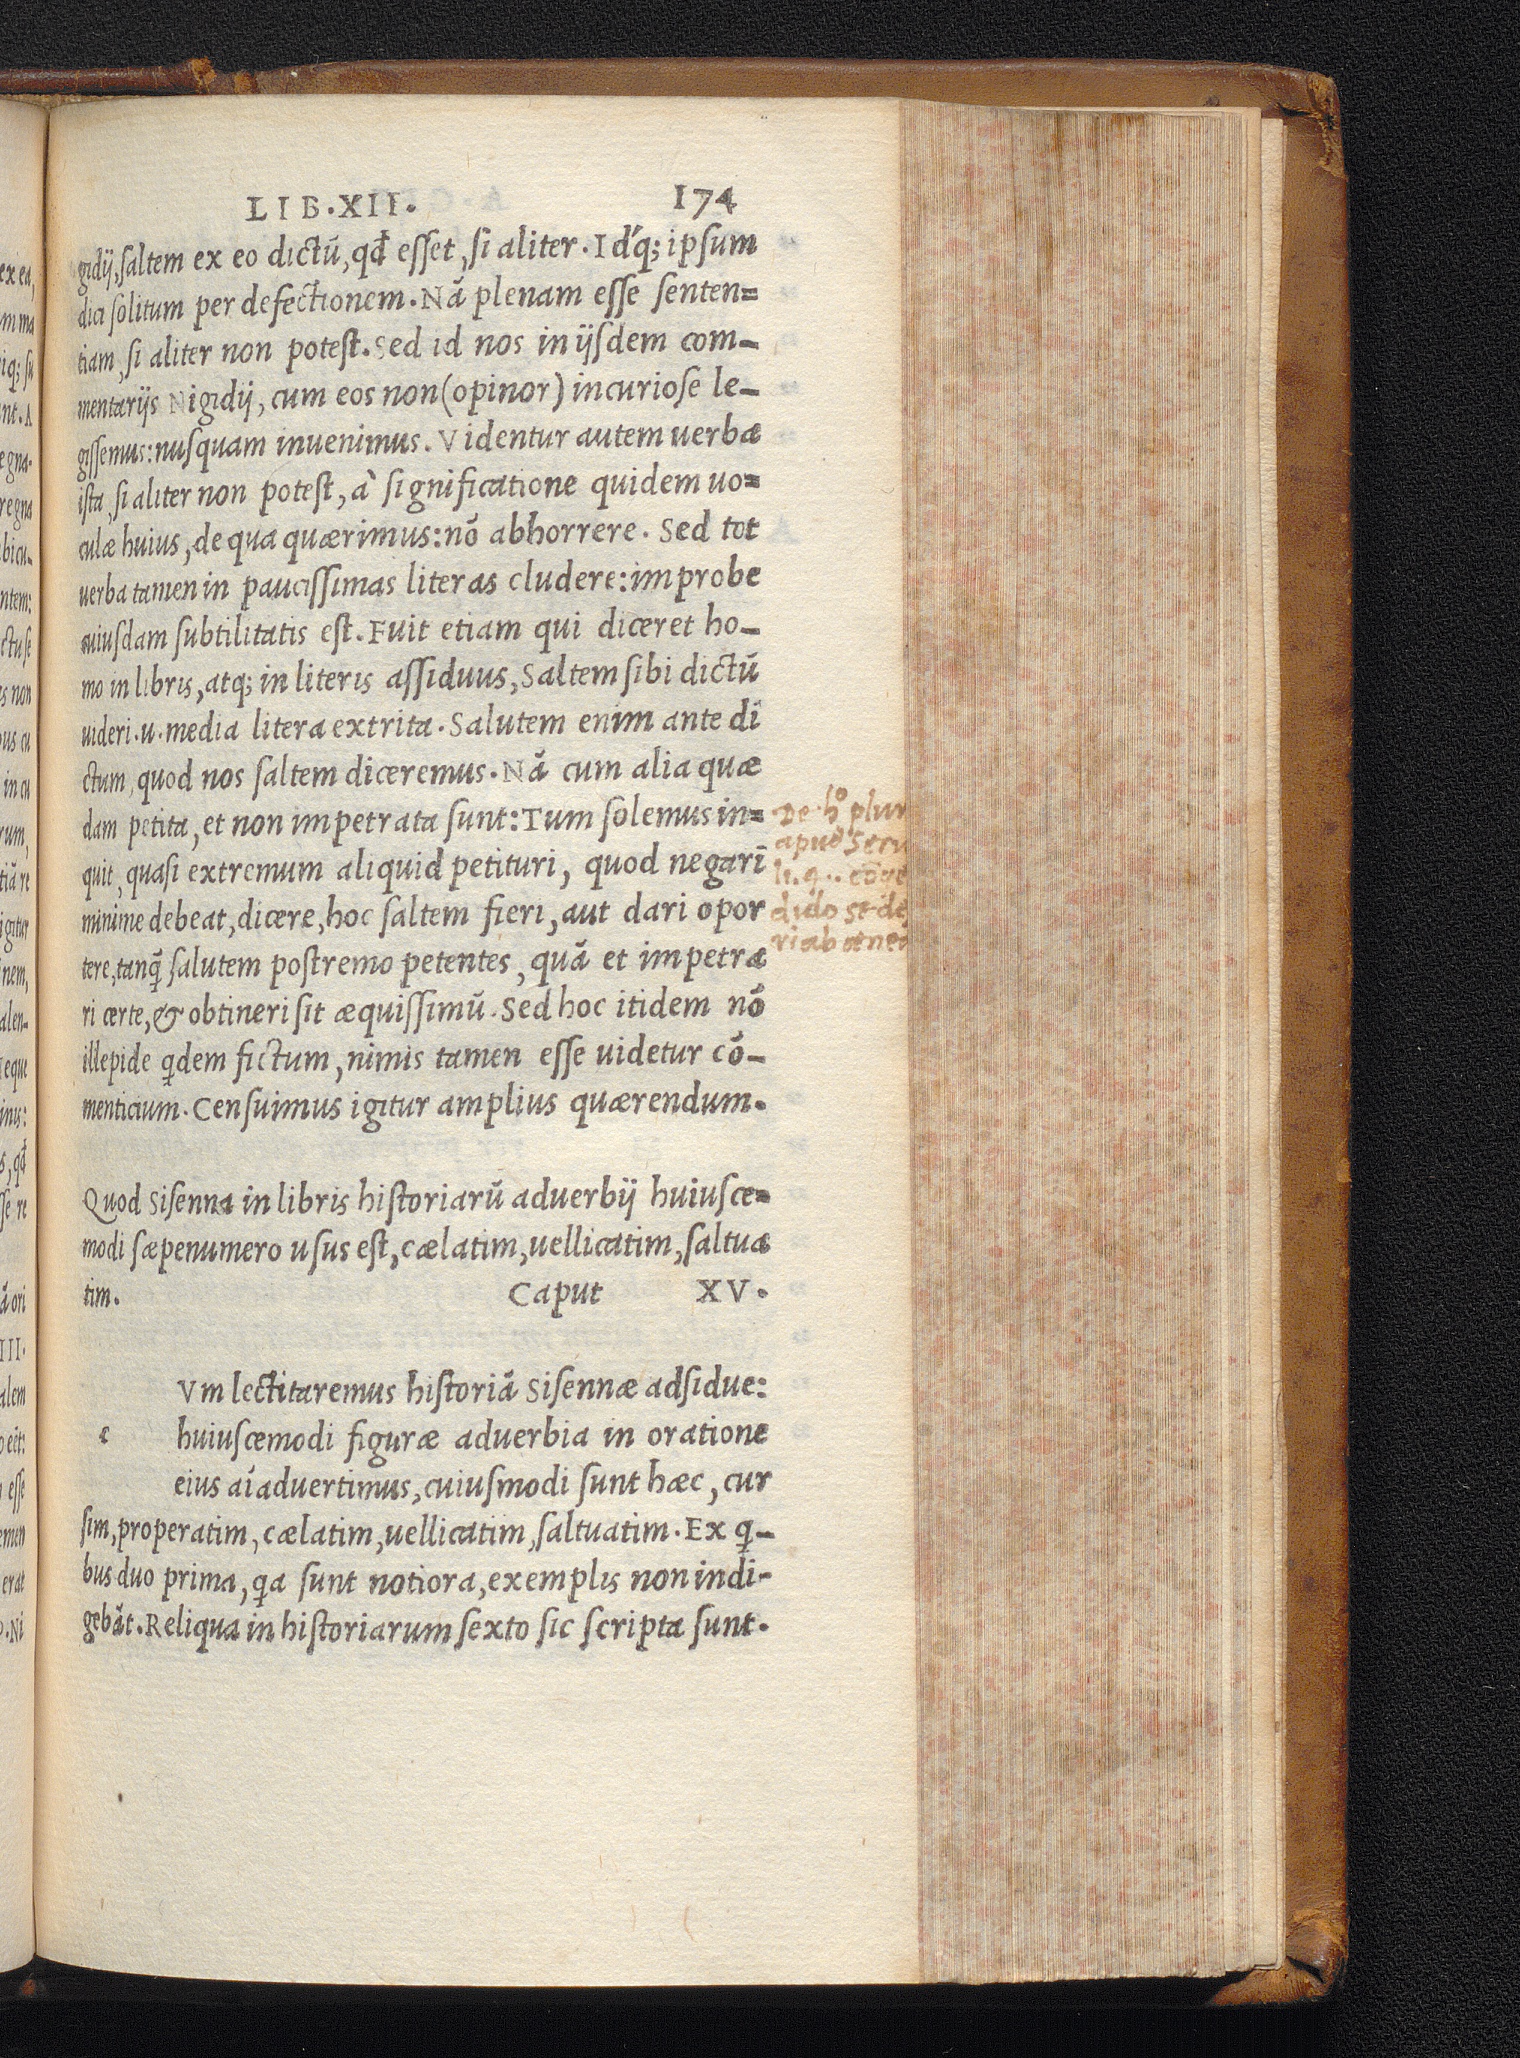 LIB.XII. 174
gidij, saltem ex eo dictū, qđ esset, si aliter. Idq́; ipsum
dici solitum per defectionem. Nā plenam esse senten=
tiam, si aliter non potest. Sed id nos in ijsdem com-
mentarijs Nigidij, cum eos non (opinor) incuriose le-
gissemus: nusquam inuenimus. Videntur autem uerba
ista, si aliter non potest, à significatione quidem uo=
culæ huius, de qua quærimus: nō abhorrere. Sed tot
uerba tamen in paucissimas literas cludere: improbe
cuiusdam subtilitatis est. Fuit etiam qui diceret ho-
mo in libris, atq; in literis assiduus, Saltem sibi dictū
uideri .u. media litera extrita. Salutem enim ante di
ctum, quod nos saltem diceremus. Nā cum alia quæ
dam petita, et non impetrata sunt: Tum solemus in=
quit, quasi extremum aliquid petituri, quod negari
minime debeat, dicere, hoc saltem fieri, aut dari opor
tere, tanq̄ salutem postremo petentes, quā et impetra
ri certe, & obtineri sit æquissimū. Sed hoc itidem nō
illepide qdem fictum, nimis tamen esse uidetur cō-
menticium. Censuimus igitur amplius quærendum.
De hº plur
apud Seru
dido
Quod Sisenna in libris historiarū aduerbij huiusce=
modi sæpenumero usus est, cælatim, uellicatim, saltua
tim. Caput XV.
Vm lectitaremus historiā Sisennæ adsidue:
c huiuscemodi figuræ aduerbia in oratione
eius aīaduertimus, cuiusmodi sunt hæc, cur
sim, properatim, cælatim, uellicatim, saltuatim. Ex q-
bus duo prima, qa sunt notiora, exemplis non indi-
gebāt. Reliqua in historiarum sexto sic scripta sunt.